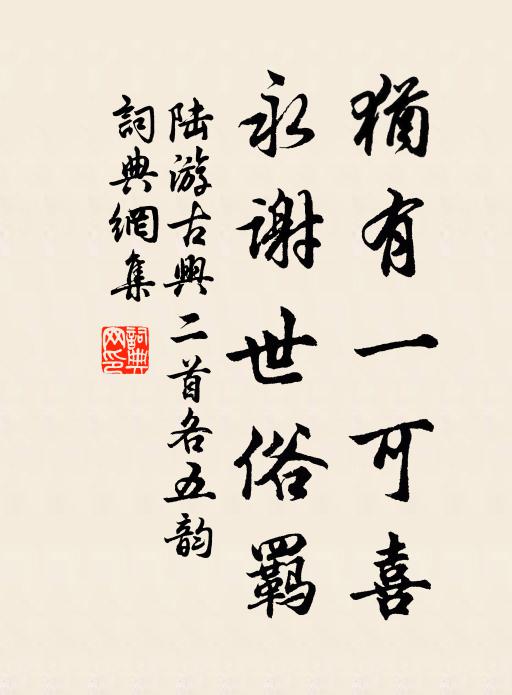 猶有一可喜
永謝世俗羈
陆游古興二首各五韵
詞典網集
詞典网印